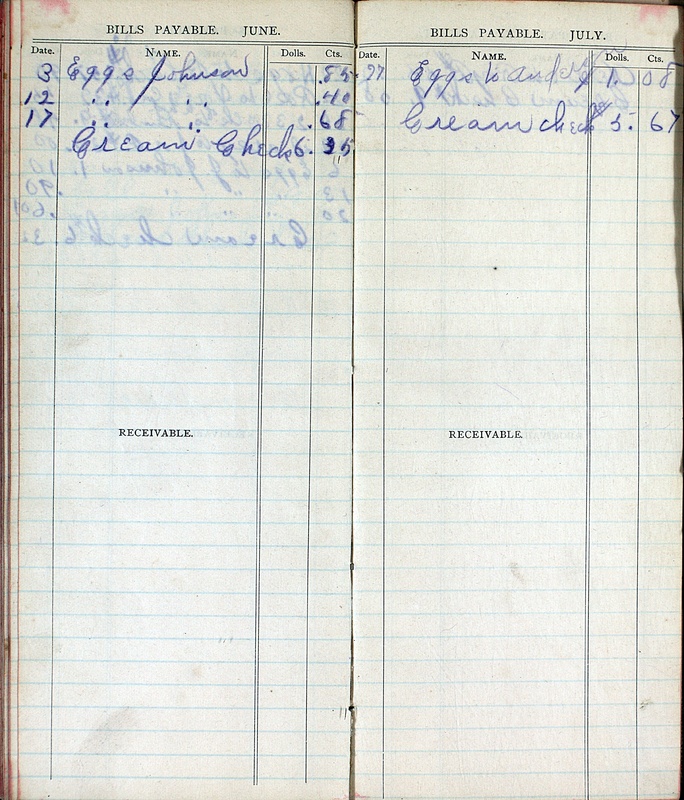 BILLS PAYABLE. JUNE.
Date. NAME. Dolls. Cts.
3 Eggs Johnson .85
12 " " .40
17 " " .68
Cream Check 6. 35
RECEIVABLE.
BILLS PAYABLE. JULY.
Date. NAME. Dolls. Cts.
27 Eggs 1. 08
Cream check 5. 67
RECEIVABLE.